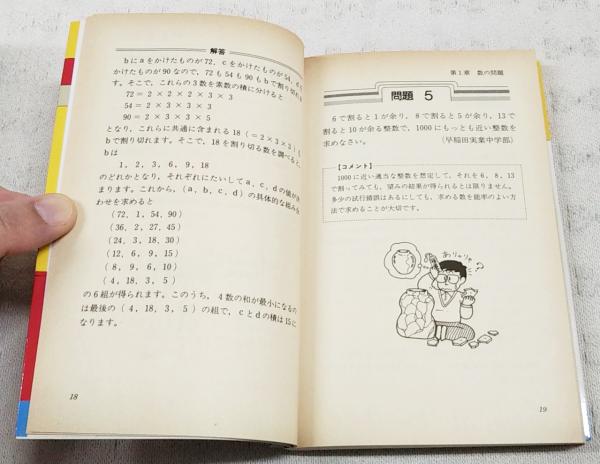 解答
bにaをかけたものが72，cをかけたものが54，dを
かけたものが90なので，72も54も90もbで割り切れ
ます。そこで，これらの3数を素数の積に分けると
72＝2×2×2×3×3
54＝2×3×3×3
90＝2×3×3×5
となり，これらに共通に含まれる18（＝2×3×3）も
bで割り切れます。そこで，18を割り切る数を調べると，
bは
1，2，3，6，9，18
のどれかとなり，それぞれにたいしてa，c，dの値が決
まります。これから，(a，b，c，d)の具体的な組み合
わせを求めると
(72，1，54，90)
(36，2，27，45)
(24，3，18，30)
(12，6，9，15)
(8，9，6，10)
(4，18，3，5)
の6組が得られます。このうち，4数の和が最小になるの
は最後の(4，18，3，5)の組で，cとdの積は15に
なります。
18
第1章 数の問題
問題 5
6で割ると1が余り，8で割ると5が余り，13で
割ると10が余る整数で，1000にもっとも近い整数を
求めなさい。（早稲田実業中学部）
【コメント】
1000に近い適当な整数を想定して，それを6，8，13
で割ってみても，望みの結果が得られるとは限りません。
多少の試行錯誤はあるにしても，求める数を能率のよい方
法で求めることが大切です。
ありゃりゃ
?
19